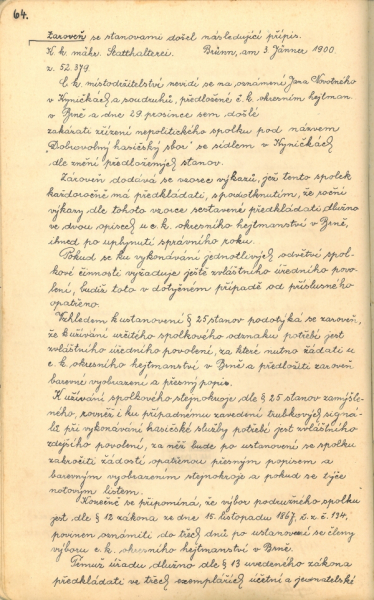 64.
Zároveň se stanovami došel následující přípis.
K. k. mähr. Statthalterei. Brünn, am 3 Jänner 1900.
z. 52.379.
C. k. místodržitelství nevidí se na oznámení Jana Novotného
v Kyničkách a soudruhů, předložené c. k. okresním hejtman.
v Brně a dne 29. prosince sem došlé
zakázati zřízení nepolitického spolku pod názvem
"Dobrovolný hasičský sbor" se sídlem v Kyničkách
dle znění předložených stanov.
Zároveň dodává se vzorec výkazů, jež tento spolek
každoročně má předkládati, s podotknutím, že roční
výkazy dle tohoto vzorce sestavené předkládati dlužno
ve dvou opisech u c. k. okresního hejtmanství v Brně,
ihned po uplynutí správního roku.
Pokud se ku vykonávání jednotlivých odvětví spol-
kové činnosti vyžaduje ještě zvláštního úředního povo-
lení, budiž toto v dotyčném případě od příslusného
opatřeno.
Vzhledem k ustanovení § 25 stanov podotýká se zároveň,
že k užívání určitého spolkového odznaku potřebí jest
zvláštního úředního povolení, za které nutno žádati u
c. k. okresního hejtmanství v Brně a předložiti zároveň
barevné vyobrazení a přesný popis.
K užívání spolkového stejnokroje dle § 25 stanov zamýšle-
ného, rovněž i ku případnému zavedení trubkových signá-
lů při vykonávání hasičské služby potřebí jest zvláštního
zdejšího povolení, za něž bude po ustanovení se spolku
zakročiti žádostí opatřenou přesným popisem a
barevným vyobrazením stejnokroje a pokud se týče
notovým listem.
Konečně se připomíná, že výbor podružného spolku
jest dle § 12 zákona ze dne 15. listopadu 1867, ř. z. č. 134,
povinen oznámiti do třech dnů po ustanovení se členy
výboru c. k. okresního hejtmanství v Brně.
Témuž úřadu dlužno dle § 13 uvedeného zákona
předkládati ve třech exemplářích účetní a jednatelské